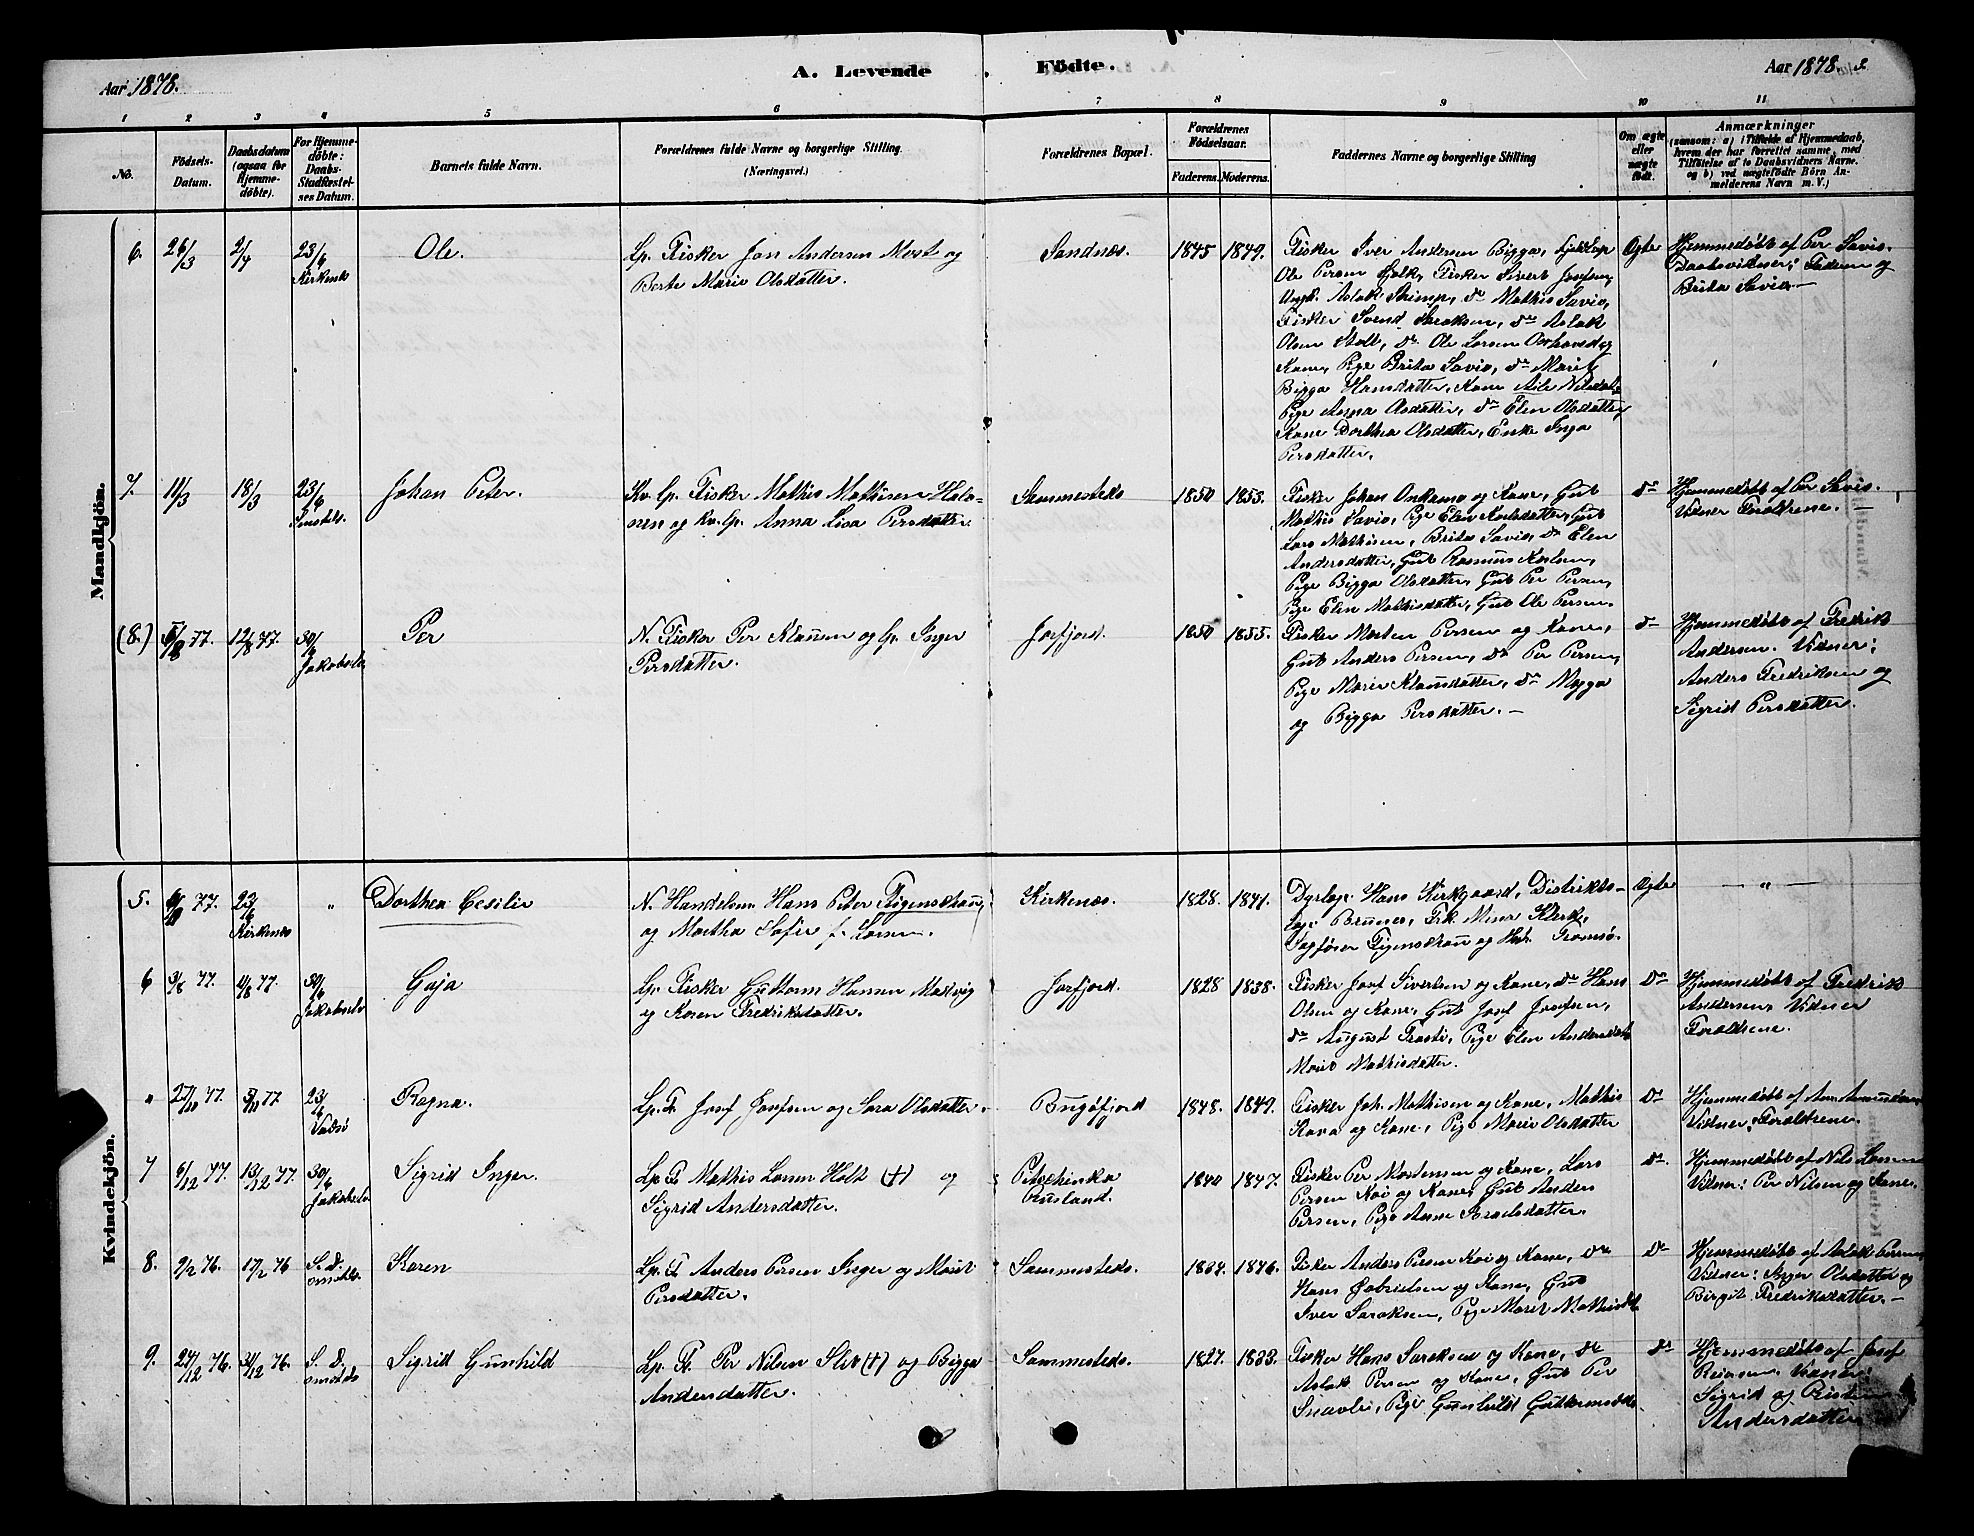 Aar 1878.
A. Levende Födte.
Aar 1878. 2.
1 2 3 4 5 6 7 8 9 10 11
No.
Födsels-Datum.
Daabsdatum (ogsaa for Hjemme-döbte).
For Hjemme-döbte: Daabs-Stadfæstel-ses Datum.
Barnets fulde Navn.
Forældrenes fulde Navne og borgerlige Stilling. (Næringsvei.)
Forældrenes Bopæl.
Forældrenes Födselsaar.
Faderens. Moderens.
Faddernes Navne og borgerlige Stilling
Om ægte eller uægte födt.
Anmærkninger
(saasom: a) i Tilfælde af Hjemmedaab, hvem der har forrettet samme, med Tilföielse af to Daabsvidners Navne. og b) ved uægtefödte Börn An-melderens Navn m. V.)
Mandkjön.
6. 26/3 2/4 23/6 Kirkenes
Ole.
Lp. Fisker Jon Andersen Most og
Berte Marie Olsdatter.
Sandnæs.
1845 1849.
Fisker Iver Andersen Bigga,
Ole Persen Fjelk, Fisker Sivert Josefsen,
Ungk. Aslak Skimp, do Mathis Savio,
Fisker Svend Saraksen, do Aslak
Olsen Stolt, do Ole Larsen
Kone, Pige Brita Savio, do Marit
Bigga Hansdatter, Kone Aile Nilsdat.
Pige Anna Olsdatter, do Elen Olsdatter,
Kone Dorthea Olsdatter, Enke Inga
Persdatter.
Ægte
Hjemmedöbt af Per Savio.
Daabsvidner: Faderen og
Brita Savio.
7. 11/3 18/3 23/6
Johan Peter.
Kv. Lp. Fisker Mathis Mathisen Halo-
nen og Kv. Lp. Anna Lisa Persdatter.
Sammesteds
1850 1853.
Fisker Johan Onkamo og Kone, Gut
Mathis Savio, Pige Elen Karlsdatter, Gut
Lars Mathisen, Brita Savio, do Elen
Andersdatter, Gut Rasmus Karlsen,
Pige Bigga Olsdatter, Gut Per Persen,
Pige Elen Mathisdatter, Gut Ole Persen.
do
Hjemmedöbt af Per Savio.
Vidner Forældrene. —
(8.) 5/8 77. 12/8 77. 30/6 Jakobselv
Per
N. Fisker Per Klausen og Lp. Inger
Persdatter.
Jarfjord.
1850 1855.
Fisker Morten Persen og Kone,
Gut Anders Persen, do Per Persen,
Pige Marie Klausdatter, do Magga
og Bigga Persdatter. —
do
Hjemmedöbt af Fredrik
Andersen. Vidner:
Anders Fredriksen og
Sigrid Persdatter.
Kvindekjön.
5. 77. 23/6 Kirkenes "
Dorthea Cecilie
N. Handelsm. Hans Peter Figenschau,
og Martha Sofie f. Larsen.
Kirkenæs.
1828. 1841.
Dyrlæge Hans Kirkgaard, Distrikts-
læge Brunes, Frk. Mina Klerk,
Sagförer Figenschau og Tromsö.
Ægte
— " —
6 3/8 77. 4/8 77. 30/6 Jakobselv
Gaja
Lp. Fisker Guttorm Hansen Madvig
og Karen Fredriksdatter.
Jarfjord.
1828 1838.
Fisker Josef Sivertsen og Kone, do Hans
Olsen og Kone, Gut Josef Josefsen,
do August Trosti, Pige Elen Andersdat.
Marit Mathisdatter.
do
Hjemmedöbt af Fredrik
Andersen, Vidner
Forældrene.
" 27/10 77. 5/11 77 23/6 Vadsö
Ragna.
Lp. F. Josef Josefsen og Sara Olsdatter.
Bugöfjord
1848. 1849.
Fisker Joh. Mathisen og Kone, Mathis
Kava og Kone, Pige Marie Olsdatter
do
Hjemmedöbt af
Vidner, Forældrene.
7 6/12 77. 13/12 77. 30/6 Jakobselv
Sigrid Inger.
Lp. F. Mathis Larsen Holt (+) og
Sigrid Andersdatter.
Petschenka
Rusland.
1840 1847.
Fisker Per Mortensen og Kone, Lars
Persen Koi og Kone, Gut Anders
Persen, Pige Anne Israelsdatter.
do
Hjemmedöbt af Nils Larsen
Vidner: Per Nilsen og Kone.
8. 9/2 76. 17/2 76 S. D.
Karen
Lp. F. Anders Persen Inger og Marit
Persdatter.
Sammesteds.
1834. 1846.
Fisker Anders Persen Koi og Kone, do
Hans Gabrielsen og Kone, Gut
Iver Saraksen, Pige Marit Mathisdt.
do
Hjemmedöbt af Aslak Persen,
Vidner: Inger Olsdatter og
Birgit Fredriksdatter. —
9. 24/12 76. 31/12 76. S. D.
Sigrid Gunhild
Lp. F. Per Nilsen Slit (+) og Bigga
Andersdatter.
Sammesteds.
1827. 1833.
Fisker Hans Saraksen og Kone, do
Aslak Persen og Kone, Gut Per
Snavli, Pige Gunhild Guttormsdt.
do
Hjemmedöbt af Josef
Vidner:
Sigrid og
Andersdatter